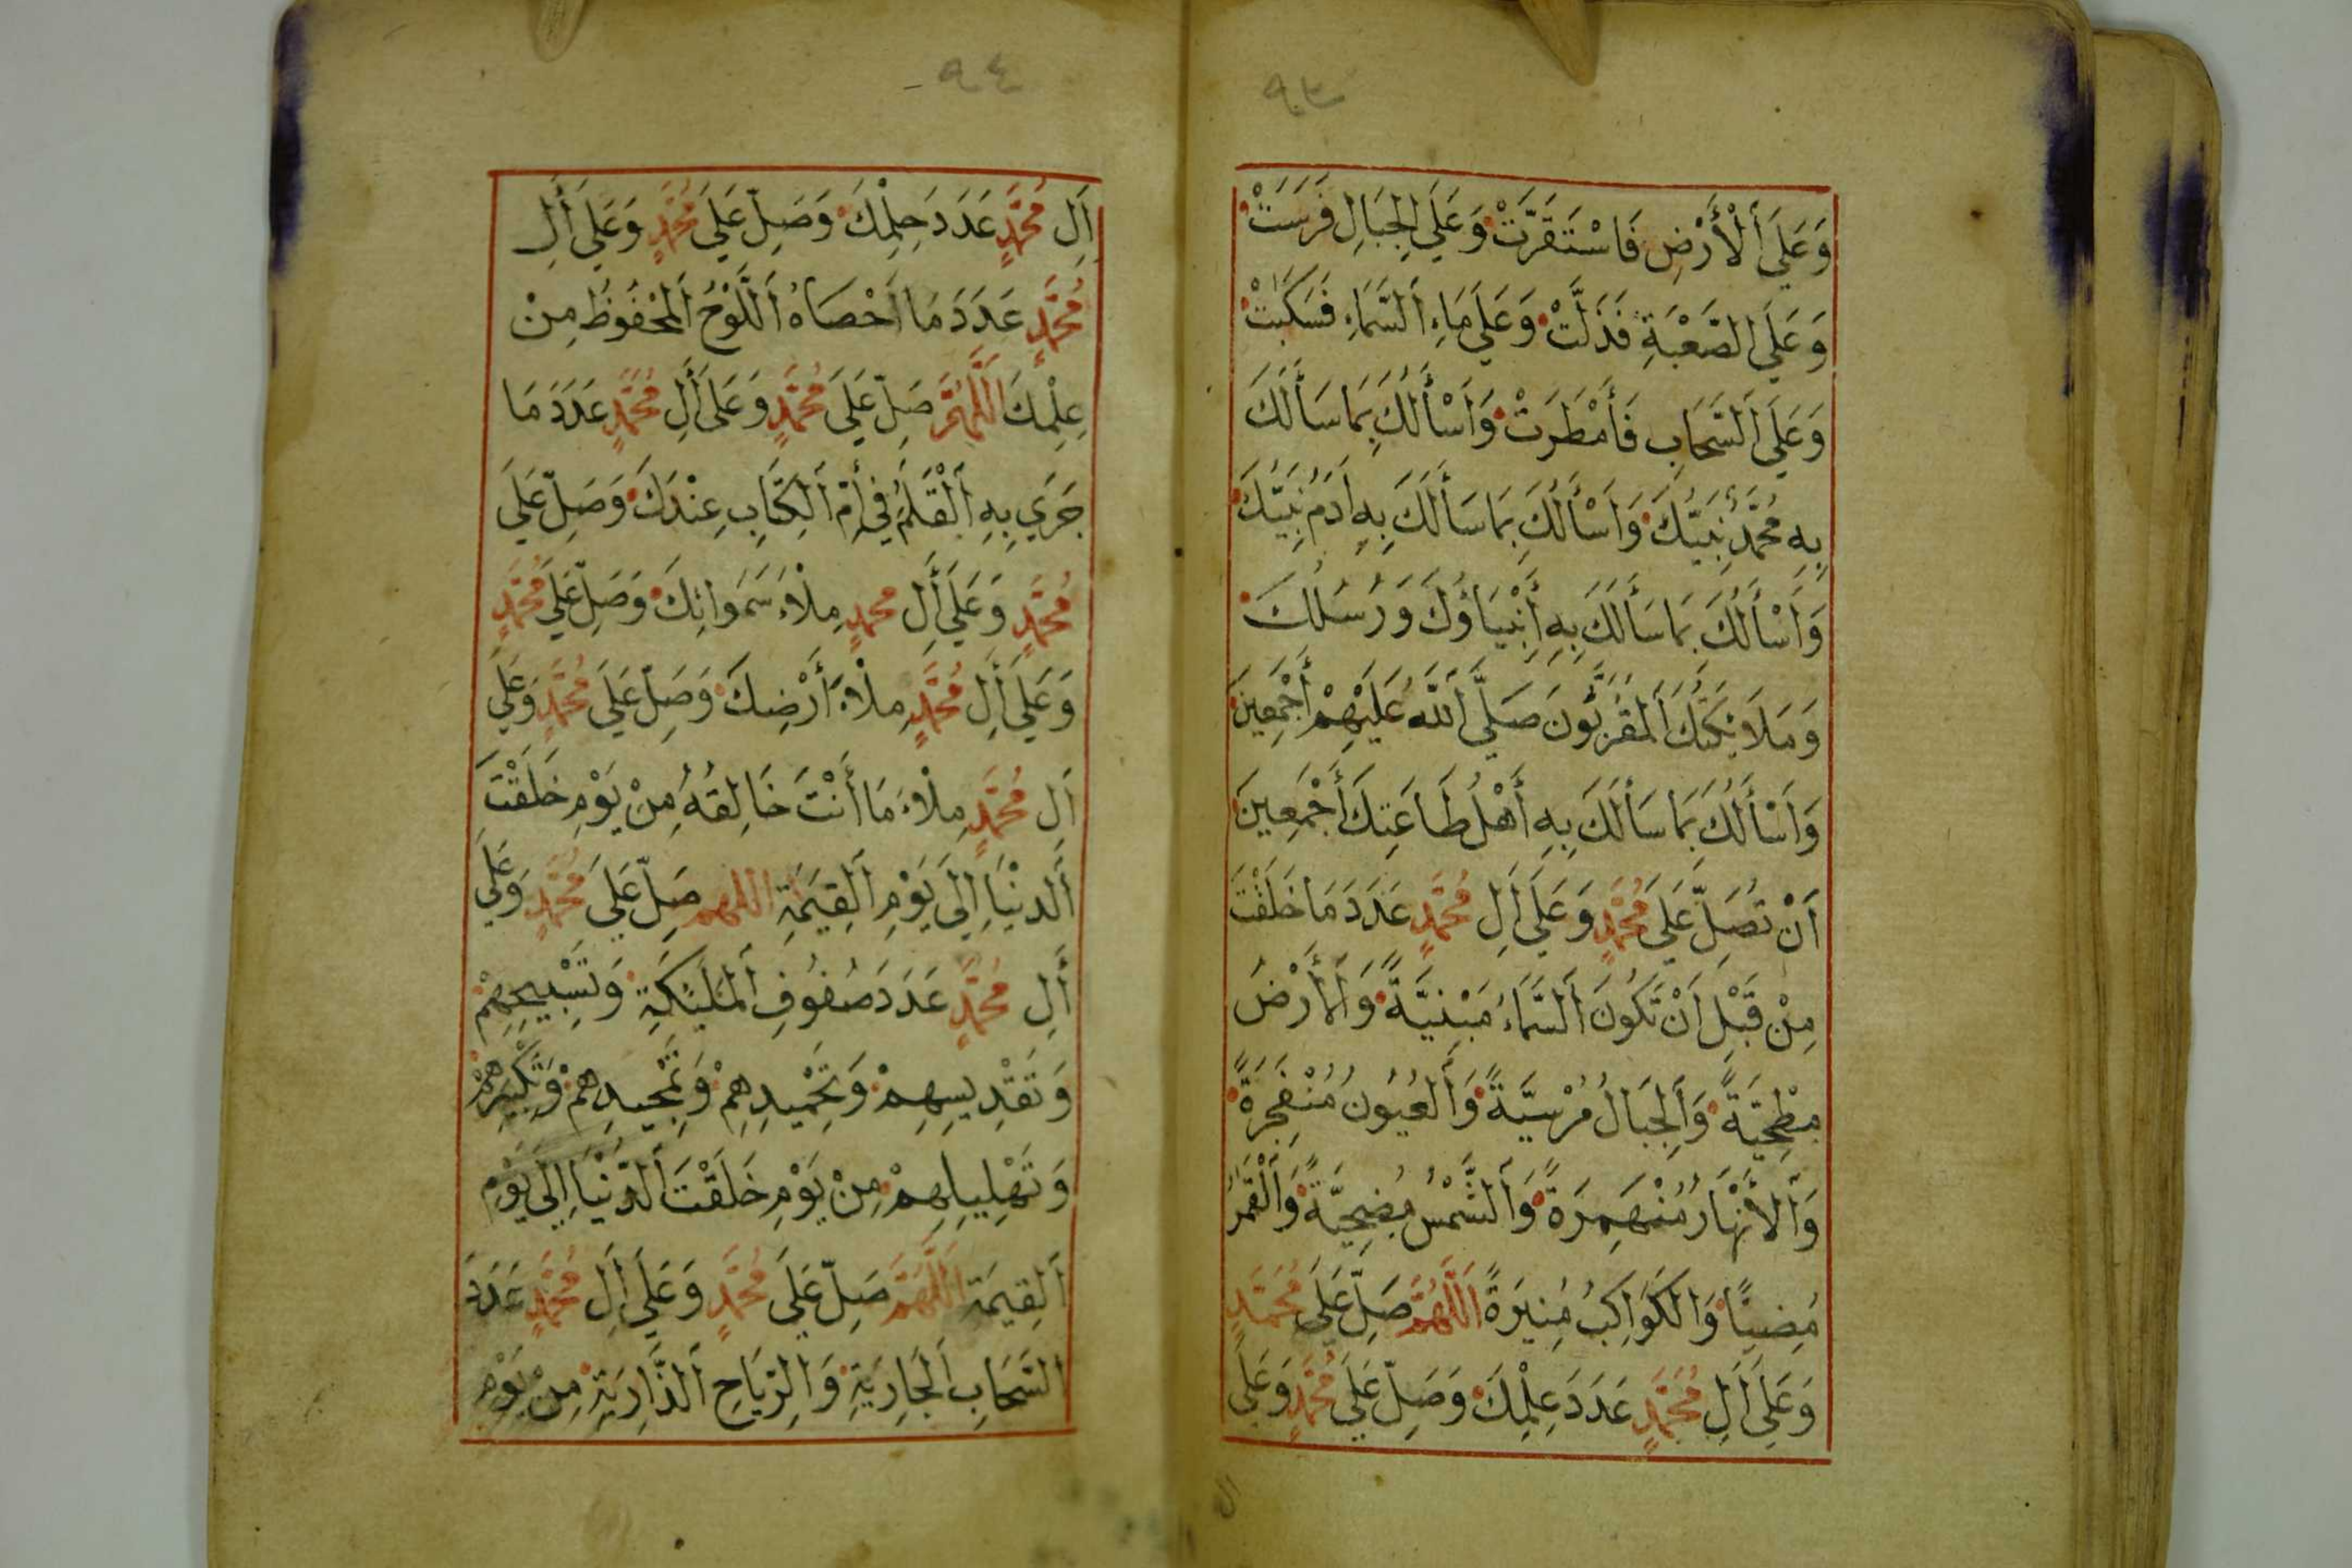 ٩٣
وَعَلَى أَلْأَرْضِ فَاسْتَقَرَّتْ وَعَلَي الْجِبَالِ فَرَسَتْ
وَعَلَي الصَّعْبَةِ فَذَلَّتْ وَعَلَي مَاءِ السَّمَاءِ فَسَكَبَتْ
وَعَلَي السَّحَابِ فَأَمْطَرَتْ وَأَسْأَلُكَ بِمَا سَأَلَكَ
بِهِ مُحَمَّدٌ نَبِيُّكَ وَأَسْأَلُكَ بِمَا سَأَلَكَ بِهِ اٰدَمُ نَبِيُّكَ
وَأَسْأَلُكَ بِمَا سَأَلَكَ بِهِ أَنْبِيَاؤُكَ وَرُسُلُكَ
وَمَلَائِكَتُكَ الْمُقَرَّبُونَ صَلَّي اللهُ عَلَيْهِمْ أَجْمَعِينَ
وَأَسْأَلُكَ بِمَا سَأَلَكَ بِهِ أَهْلُ طَاعَتِكَ أَجْمَعِينَ
أَنْ تُصَلِّ عَلَي مُحَمَّدٍ وَعَلَي اٰلِ مُحَمَّدٍ عَدَدَ مَا خَلَقْتَ
مِنْ قَبْلِ أَنْ تَكُونَ السَّمَاءُ مَبْنِيَّةً وَالْأَرْضُ
مَطْحِيَّةً وَالْجِبَالُ مُرْسِيَّةً وَالْعُيُونُ مُنْفَجِرَةً
وَالْأَنْهَارُ مُنْهَمِرَةً وَالشَّمْسُ مُضْحِيَّةً وَالْقَمَرُ
مُضِيئًا وَالْكَوَاكِبُ مُنِيرَةً اَللّٰهُمَّ صَلِّ عَلَى مُحَمَّدٍ
وَعَلَى اٰلِ مُحَمَّدٍ عَدَدَ عِلْمِكَ وَصَلِّ عَلَي مُحَمَّدٍ وَعَلَى
ال
٩٤
اٰلِ مُحَمَّدٍ عَدَدَ حِلْمِكَ وَصَلِّ عَلَي مُحَمَّدٍ وَعَلَي أٰلِ
مُحَمَّدٍ عَدَدَ مَا أَحْصَاهُ أَللَّوْحُ أَلْمَحْفُوظُ مِنْ
عِلْمِكَ اَللّٰهُمَّ صَلِّ عَلَي مُحَمَّدٍ وَعَلَى أٰلِ مُحَمَّدٍ عَدَدَ مَا
جَرَي بِهِ أَلْقَلَمُ فِي أُمِّ أَلْكِتَابِ عِنْدَكَ وَصَلِّ عَلَي
مُحَمَّدٍ وَعَلَي أٰلِ محمدٍ مِلْأَ سَمَوَاتِكَ وَصَلِّ عَلَي مُحَمَّدٍ
وَعَلَي أٰلِ مُحَمَّدٍ مِلْأَ أَرْضِكَ وَصَلِّ عَلَي مُحَمَّدٍ وَعَلَي
اٰلِ مُحَمَّدٍ مِلْأَ مَا أَنْتَ خَالِقُهُ مِنْ يَوْمِ خَلَقْتَ
أَلدُنْيَا إِلَى يَوْمِ أَلْقِيَمَةِ اللهم صَلِّ عَلَي مُحَمَّدٍ وَعَلَي
أٰلِ مُحَمَّدٍ عَدَدَ صُفُوفِ أَلْمَلَئِكَةِ وَتَسْبِيحِهِمْ
وَتَقْدِيسِهِمْ وَتَحْمِيدِهِمْ وَتَمْجِيدِهِمْ وَتَكْبِيرِهِمْ
وَتَهْلِيلِهِمْ مِنْ يَوْمِ خَلَقْتَ أَلدُّنْيَا إِلَي يَوْمِ
أَلْقِيمَةِ اَللّٰهُمَّ صَلِّ عَلَي مُحَمَّدٍ وَعَلَي اٰلِ مُحَمَّدٍ عَدَدَ
السَّحَابِ الْجَارِيَةِ وَالرِّيَاحِ أَلذَّارِيَةِ مِنْ يَوْمِ